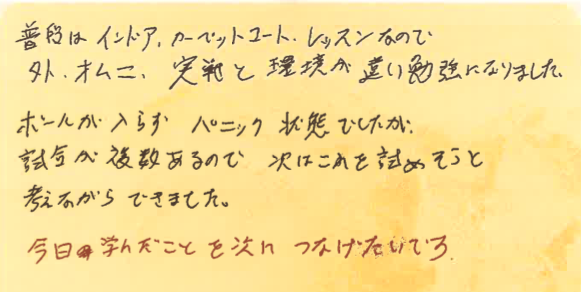 普段は インドア、カーペットコート、レッスンなので
外、オムニ、実戦と 環境が 違い勉強になりました。
ボールが 入らず パニック 状態でしたが、
試合が 複数あるので 次はこれを 試めそうと
考えながら できました。
今日学んだこと を次に つなげたいです